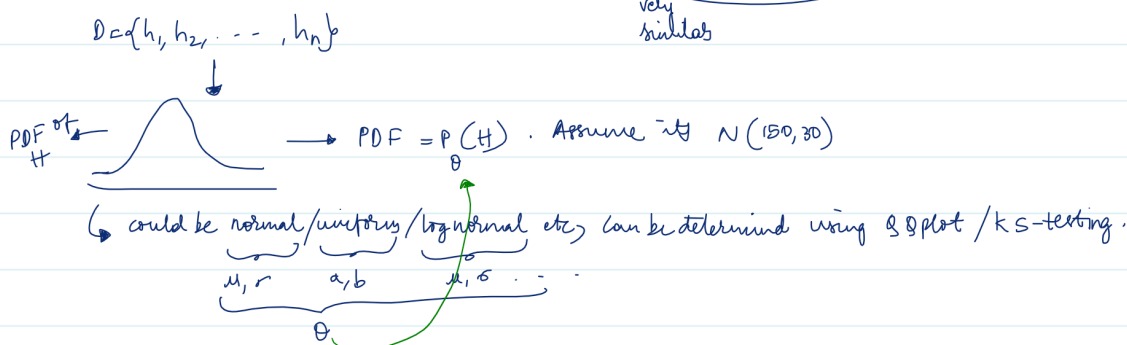 very
similar
D={h1, h2, . - - , hn}
PDF of H
PDF = Pθ(H) . Assume its N(150,30)
could be normal/uniform/lognormal etc, can be determind using QQplot /KS-testing.
μ, σ a,b μ, σ . - -
θ